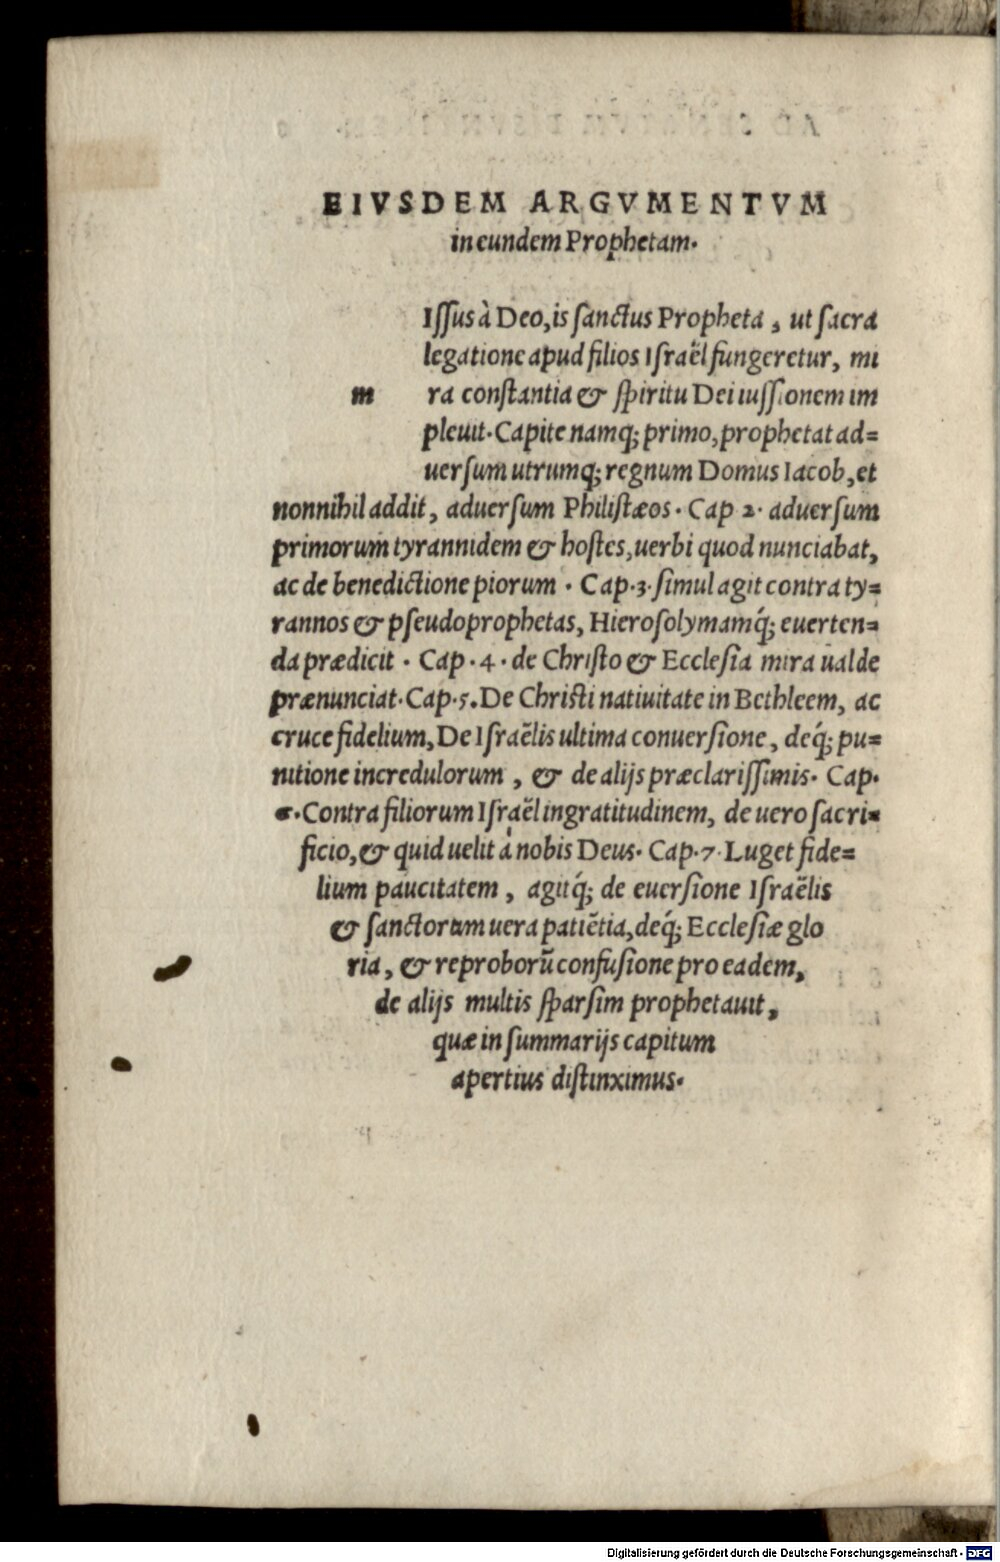 EIVSDEM ARGVMENTVM
in eundem Prophetam.
m
Issus à Deo, is sanctus Propheta, ut sacra
legatione apud filios Israël fungeretur, mi
ra constantia & spiritu Dei iussionem im
pleuit. Capite namq; primo, prophetat ad=
uersum utrumq; regnum Domus Iacob, et
nonnihil addit, aduersum Philistæos. Cap 2. aduersum
primorum tyrannidem & hostes, uerbi quod nunciabat,
ac de benedictione piorum. Cap. 3. simul agit contra ty=
rannos & pseudoprophetas, Hierosolymamq́; euerten=
da prædicit. Cap. 4. de Christo & Ecclesia mira ualde
prænunciat. Cap. 5. De Christi natiuitate in Bethleem, ac
cruce fidelium, De Israëlis ultima conuersione, deq́; pu=
nitione incredulorum, & de alijs præclarissimis. Cap.
6. Contra filiorum Israël ingratitudinem, de uero sacri=
ficio, & quid uelit à nobis Deus. Cap. 7. Luget fide=
lium paucitatem, agitq́; de euersione Israëlis
& sanctorum uera patiẽtia, deq́; Ecclesiæ glo
ria, & reproborũ confusione pro eadem,
de alijs multis sparsim prophetauit,
quæ in summarijs capitum
apertius distinximus.
Digitalisierung gefördert durch die Deutsche Forschungsgemeinschaft - DFG